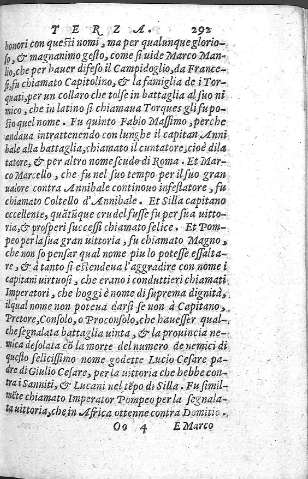 TERZA. 292
honori con questi nomi, ma per qualunque glorio-
so, & magnanimo gesto, come si uide Marco Man-
lio, che per hauer difeso il Campidoglio, da France-
si, fu chiamato Capitolino, & la famiglia de i Tor-
quati, per un collaro che tolse in battaglia al suo ni
mico, che in latino si chiamaua Torques gli fu po-
sto quel nome. Fu quinto Fabio Massimo, perche
andaua intrattenendo con lunghe il capitan Anni
bale alla battaglia, chiamato il cuntatore, cioè dila
tatore, & per altro nome scudo di Roma. Et Mar-
co Marcello, che fu nel suo tempo per il suo gran
ualore contra Annibale continouo infestatore, fu
chiamato Coltello d'Annibale. Et Silla capitano
eccellente, quātūque crudel fusse fu per sua uitto-
ria, & prosperi successi chiamato felice. Et Pom-
peo per la sua gran uittoria, fu chiamato Magno,
che non so pensar qual nome piu lo potesse essalta-
re, & à tanto si estendeua l'aggradire con nome i
capitani uirtuosi, che erano i conduttieri chiamati
Imperatori, che hoggi è nome di suprema dignità,
ilqual nome non poteua darsi se non à Capitano,
Pretore, Consolo, o Proconsolo, che hauesser qual-
che segnalata battaglia uinta, & la prouincia ne-
mica desolata cō la morte del numero de nemici di
questo felicissimo nome godette Lucio Cesare pa-
dre di Giulio Cesare, per la uittoria che hebbe con-
tra i Sanniti, & Lucani nel tēpo di Silla. Fu simil-
mēte chiamato Imperator Pompeo per la segnala-
ta uittoria, che in Africa ottenne contra Domitio.
Oo 4 E Marco